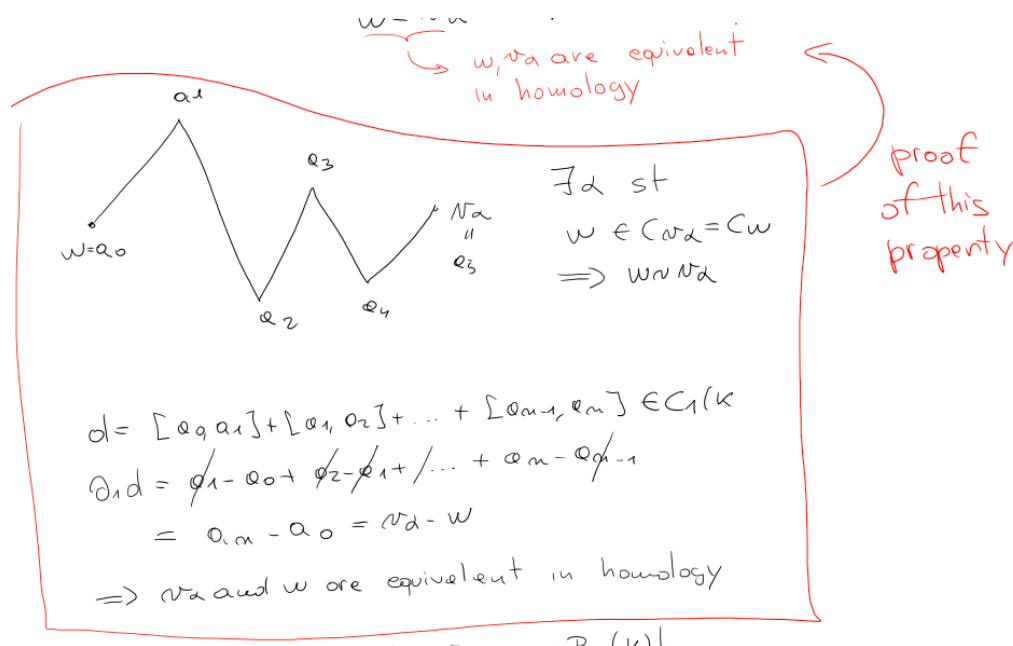 w, vα are equivalent
in homology
proof
of this
property
a1
a3
w=a0
vα
"
a3
a2
a4
∃α st
w ∈ Cvα = Cw
=> w ~ vα
d = [a0, a1] + [a1, a2] + ... + [an-1, an] ∈ C1(K
∂1d = a1 - a0 + a2 - a1 + ... + an - an-1
= an - a0 = vα - w
=> vα and w are equivalent in homology